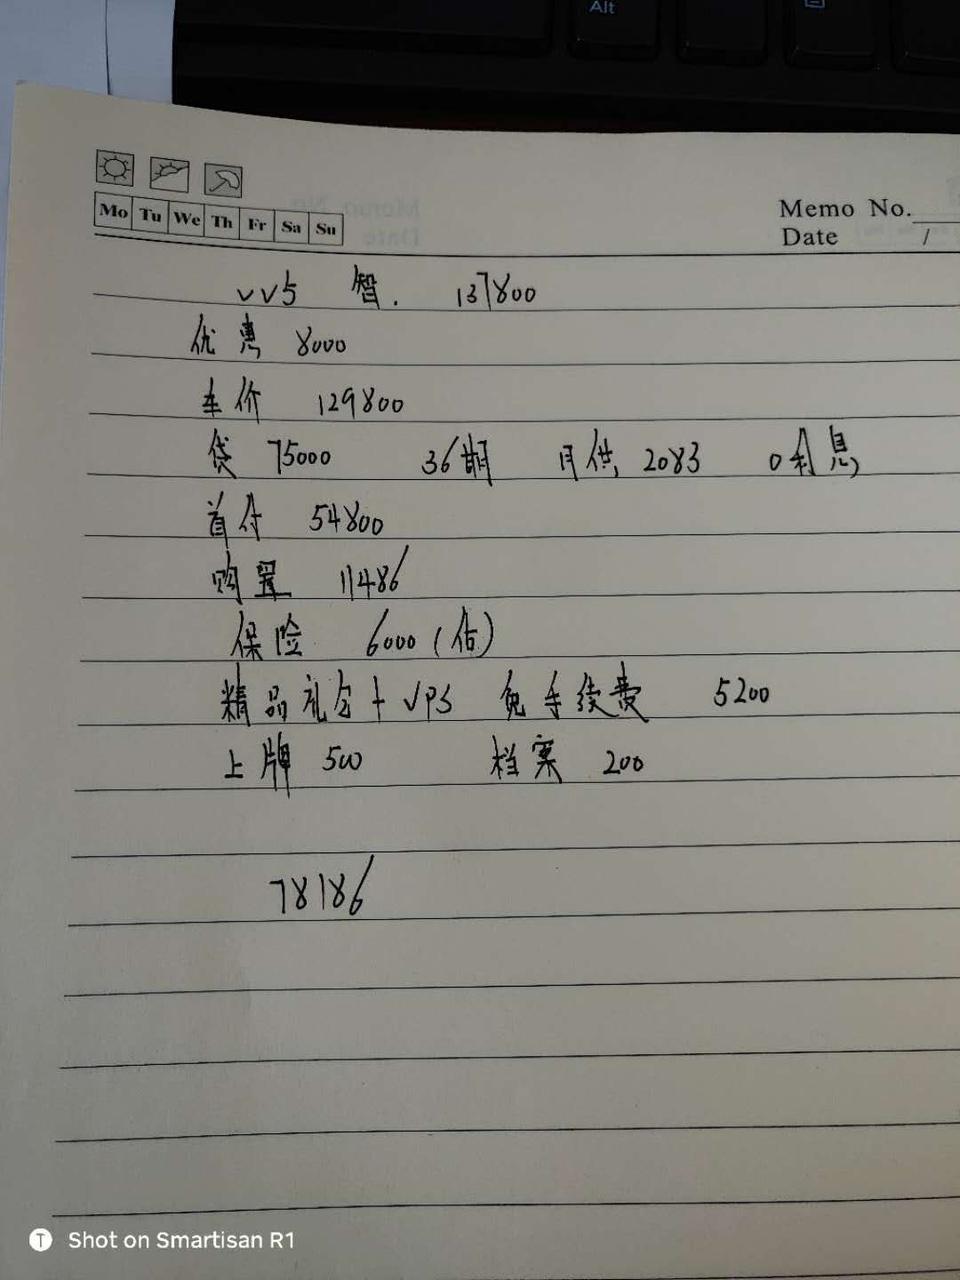 Alt
Mo Tu We Th Fr Sa Su
Memo No.
Date /
VV5 智. 137800
优惠 8000
车价 129800
贷 75000 36期 月供 2083 0利息
首付 54800
购置 11486
保险 6000(估)
精品礼包+VPS 免手续费 5200
上牌 500 档案 200
78186
T Shot on Smartisan R1